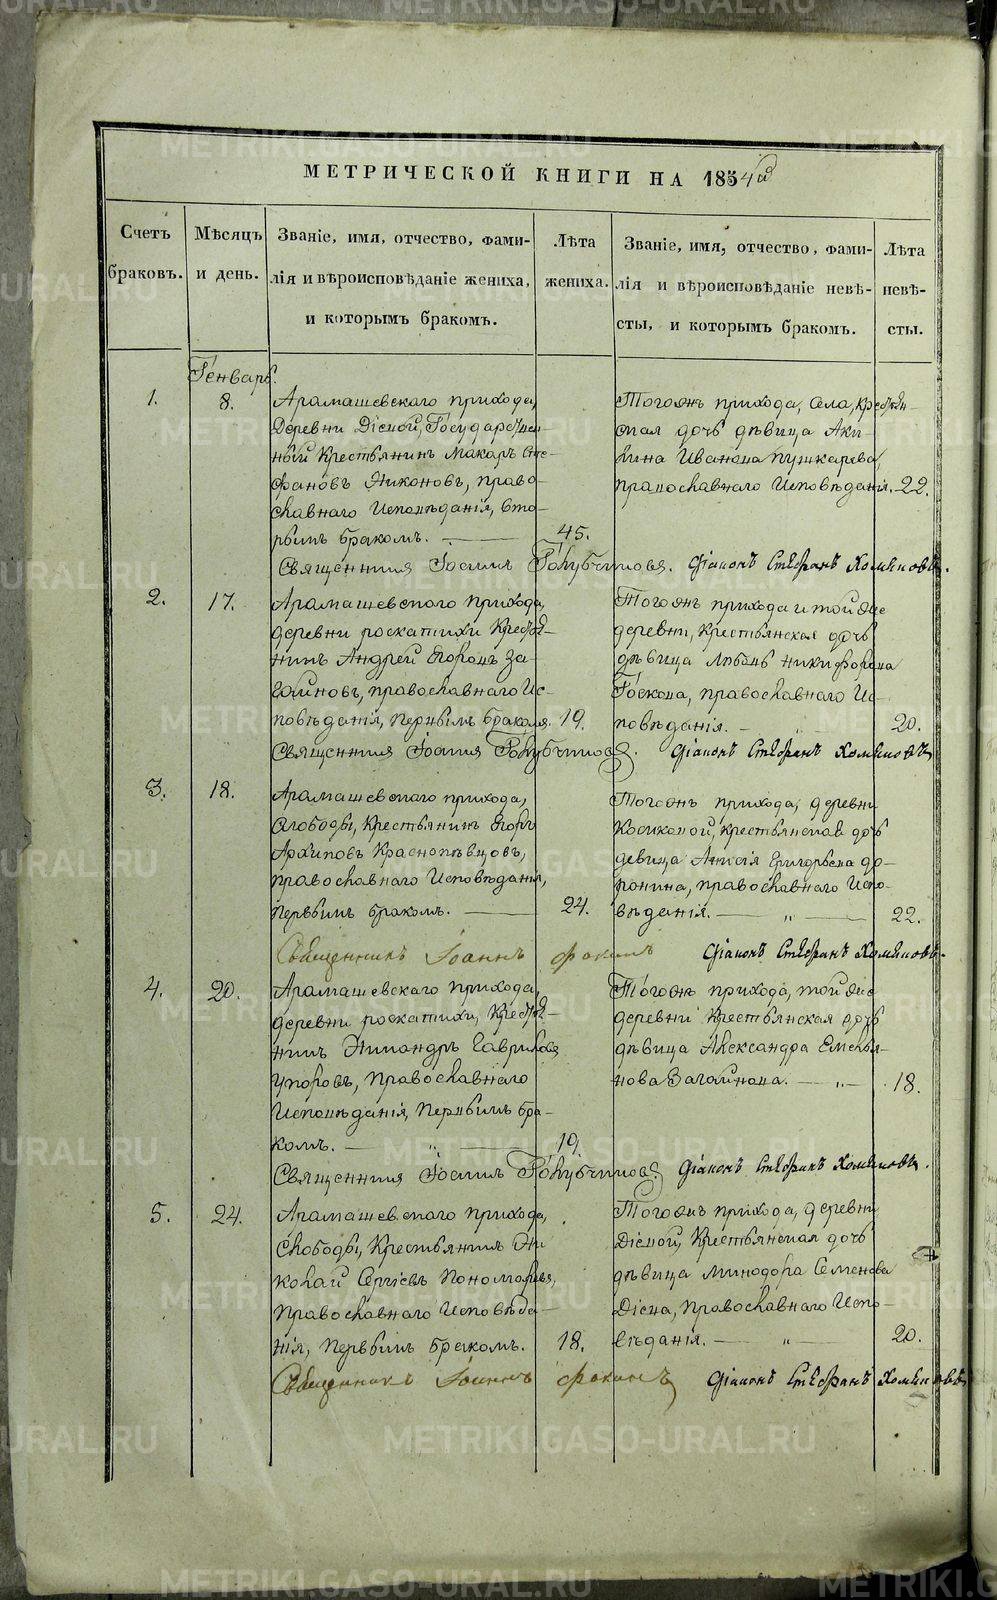 МЕТРИЧЕСКОЙ КНИГИ НА 1854й
Счетъ браковъ.
Мѣсяцъ и день.
Званіе, имя, отчество, фами-
лія и вѣроисповѣданіе жениха,
и которымъ бракомъ.
Лѣта жениха.
Званіе, имя, отчество, фами-
лія и вѣроисповѣданіе невѣ-
сты, и которымъ бракомъ.
Лѣта невѣ-
сты.
Генварь.
1.
8.
Арамашевскаго прихода,
деревни Дѣевой, Государствен-
ный Крестьянинъ Макаръ Сте-
фановъ Никоновъ, право-
славнаго Исповѣданія, вто-
рымъ бракомъ.
45.
Тогожъ прихода, села, Крестьян-
ская дочь дѣвица Аки-
лина Иванова Пушкарева,
православнаго Исповѣданія.
22.
Священникъ Іоаннъ Голубчиковъ. Діаконъ Стефанъ Хомяковъ.
2.
17.
Арамашевскаго прихода,
деревни роскатихи Крестья-
нинъ Андрей Егоровъ За-
гайновъ, православнаго Ис-
повѣданія, первымъ бракомъ.
19.
Тогожъ прихода и той же
деревни, Крестьянская дочь
дѣвица Любовь Никифорова
Госкова, православнаго Ис-
повѣданія.
20.
Священникъ Іоаннъ Голубчиковъ. Діаконъ Стефанъ Хомяковъ
3.
18.
Арамашевскаго прихода,
Слободы, Крестьянинъ Егоръ
Архиповъ Краснопѣвцовъ,
православнаго Исповѣданія,
первымъ бракомъ.
24.
Тогожъ прихода, деревни
Косиковой, крестьянская дочь
девица Анисія Григорьева До-
ронина, православнаго Испо-
вѣданія. — „ —
22.
Священникъ Іоаннъ Фокинъ Діаконъ Стефанъ Хомяковъ.
4.
20.
Арамашевскаго прихода,
деревни роскатихи, Крестья-
нинъ Никандръ Гавриловъ
Упоровъ, Православнаго
Исповѣданія, Первымъ бра-
комъ. — „ —
19.
Тогожъ прихода, той же
деревни Крестьянская дочь
дѣвица Александра Емелья-
нова Загайнова. — „ —
18.
Священникъ Іоаннъ Голубчиковъ. Діаконъ Стефанъ Хомяковъ.
5.
24.
Арамашевскаго прихода,
Слободы, Крестьянинъ Ни
колай Сергіевъ Пономаревъ,
Православнаго Исповѣда-
нія, Первымъ бракомъ.
18.
Тогожъ прихода, деревни
Дѣевой, Крестьянская дочь
дѣвица Минодора Семенова
Дѣева, Православнаго Испо-
вѣданія. — „ —
20.
Священникъ Іоаннъ Фокинъ Діаконъ Стефанъ Хомяковъ
METRIKI.GASO-URAL.RU